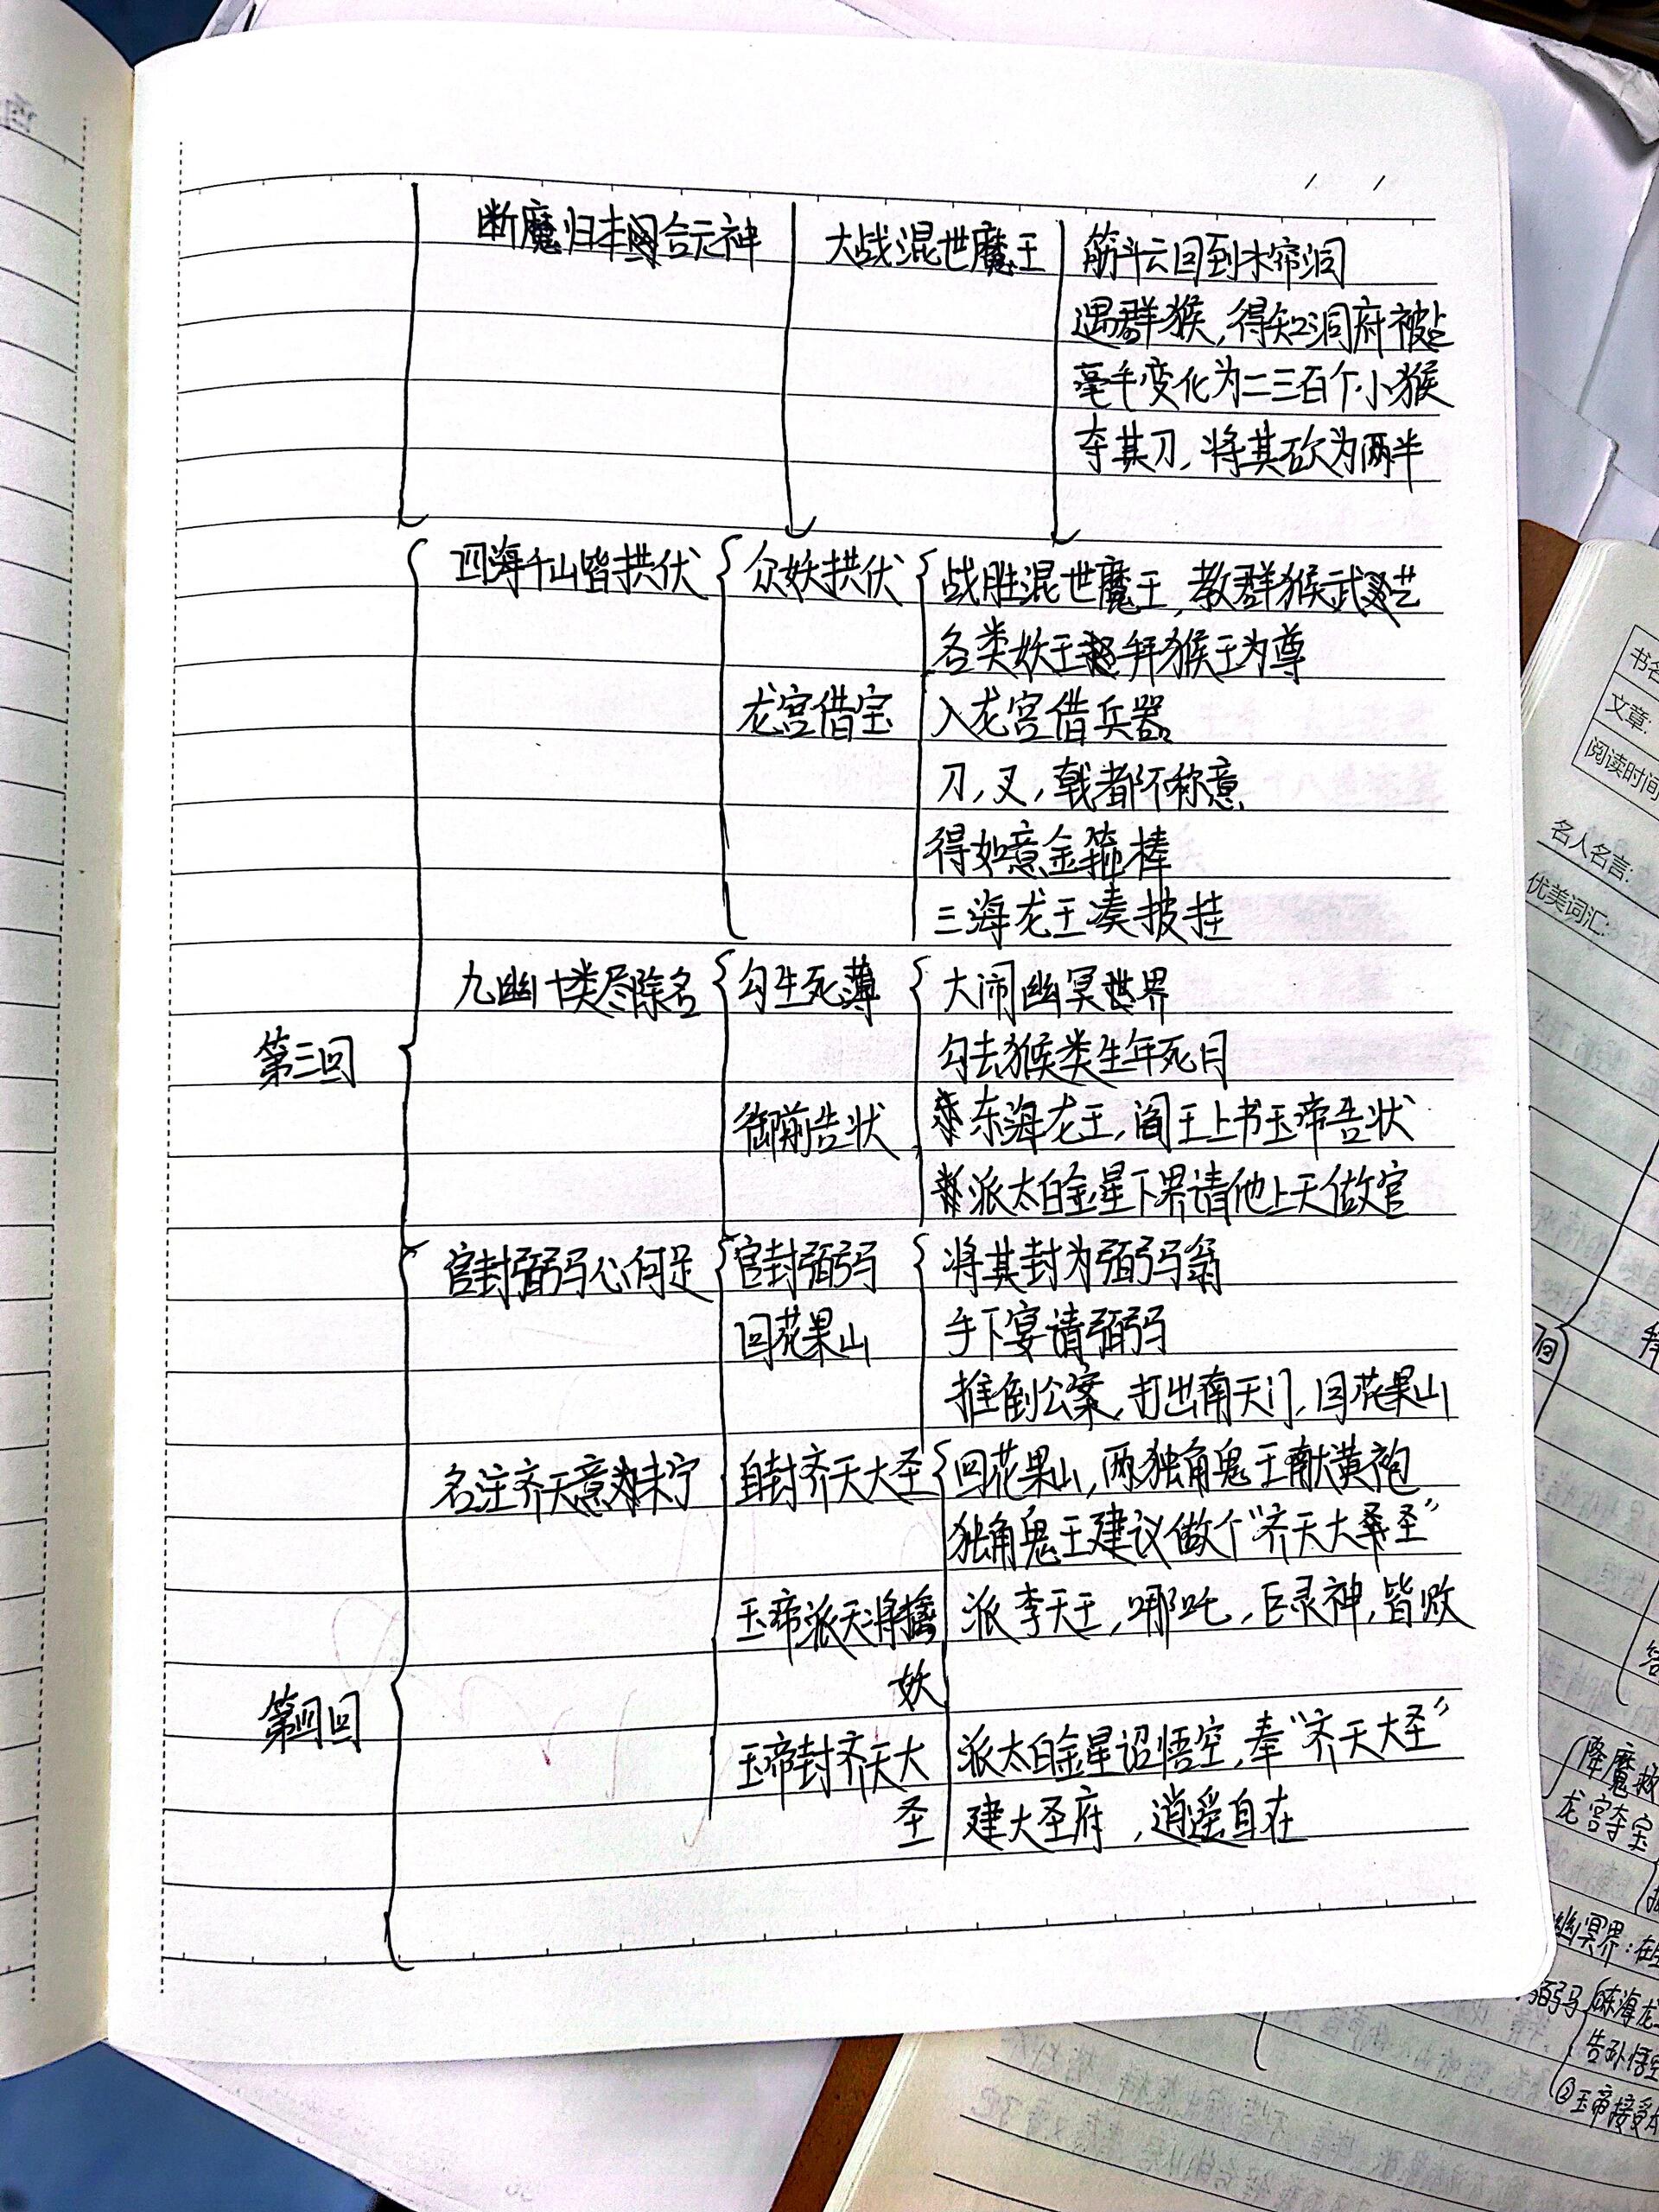 断魔归本合元神 大战混世魔王 筋斗云回到水帘洞
遇群猴,得知洞府被占
毫毛变化为二三百个小猴
夺其刀,将其砍为两半
四海千山皆拱伏 众妖拱伏 战胜混世魔王,教群猴武艺
各类妖王拜猴王为尊
龙宫借宝 入龙宫借兵器
刀,叉,戟都不称意
得如意金箍棒
三海龙王凑披挂
九幽十类尽除名 勾生死薄 大闹幽冥世界
第三回 勾去猴类生年死日
御前告状 东海龙王,阎王上书玉帝告状
派太白金星下界请他上天做官
官封弼马心何足 官封弼马 将其封为弼马翁
回花果山 手下宴请弼马
推倒公案,打出南天门,回花果山
名注齐天意未宁 自封齐天大圣 回花果山,两独角鬼王献黄袍
独角鬼王建议做个“齐天大圣”
玉帝派天将擒 派李天王,哪吒,巨灵神,皆败
妖
第四回 玉帝封齐天大 派太白金星诏悟空,奉“齐天大圣”
圣 建大圣府,逍遥自在
书名
文章:
阅读时间
名人名言:
优美词汇:
回
降魔
龙宫夺宝
幽冥界:在
弼马 东海龙
告孙悟空
②玉帝接受